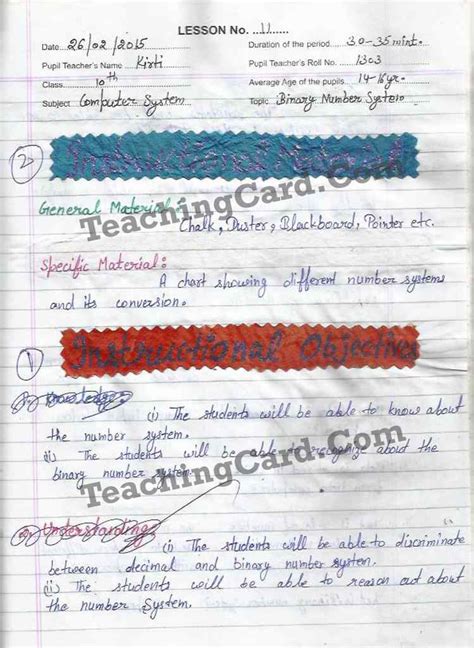 LESSON No. 11
Date 26/02/2015 Duration of the period 30-35 mint.
Pupil Teacher's Name Kirti Pupil Teacher's Roll No. 1303
Class 10th Average Age of the pupils 14-16yr.
Subject Computer System Topic Binary Number System
2
Instructional Material
General Material:
TeachingCard.Com
Chalk, Duster, Blackboard, Pointer etc.
Specific Material:
A chart showing different number systems
and its conversion.
1
Instructional Objectives
Knowledge:
(i) The students will be able to know about
the number system.
(ii) The students will be able to recognize about the
binary number system.
TeachingCard.Com
Understanding:
(i) The students will be able to discriminate
between decimal and binary number system.
(ii) The students will be able to reason out about
the number System.